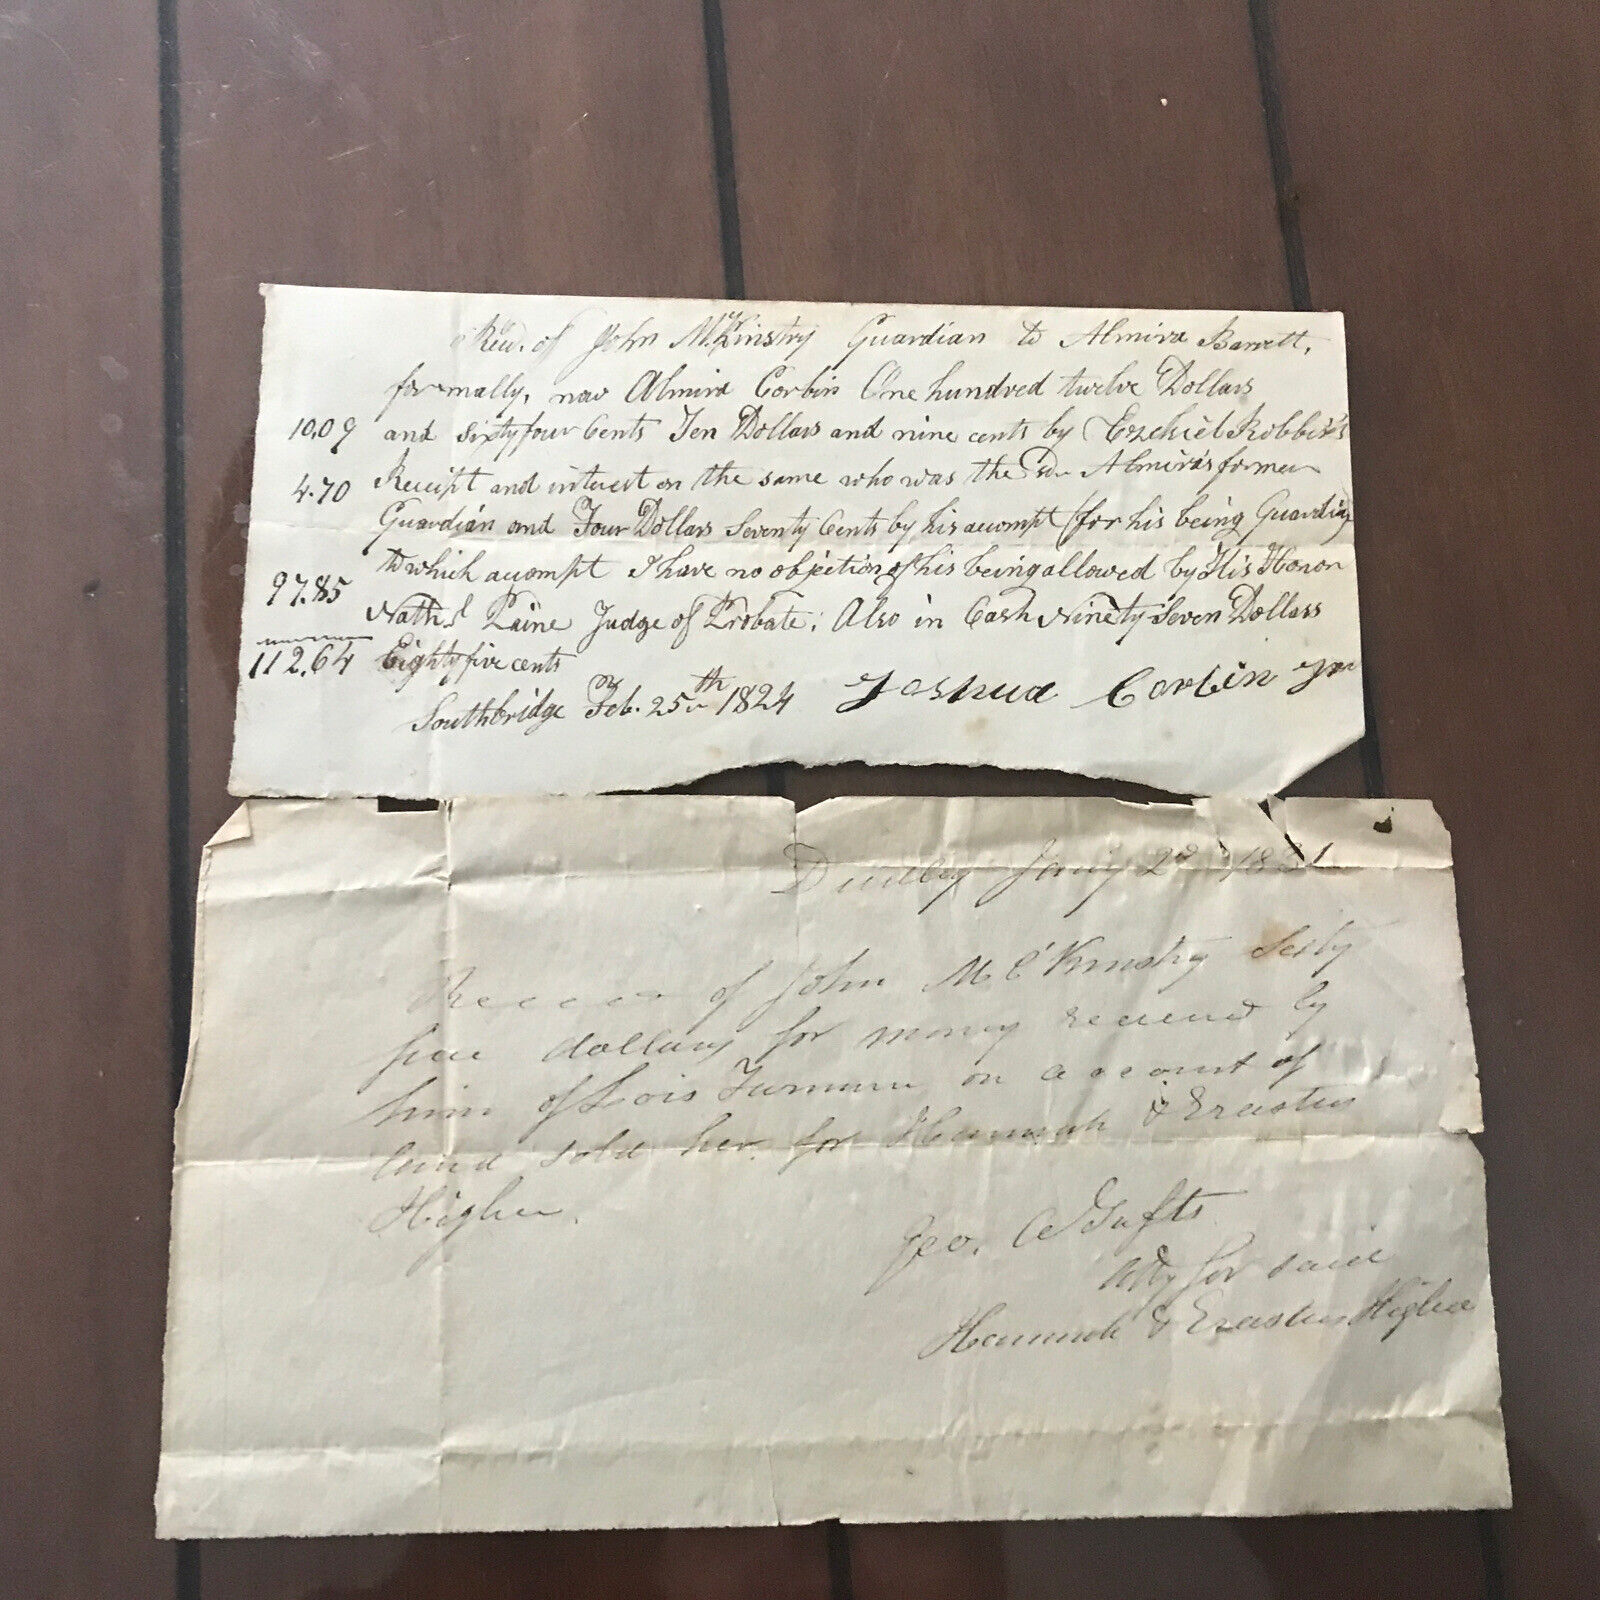 Recd. of John McKinstry Guardian to Almira Barrett,
formally, now Almira Corbin One hundred twelve Dollars
10.09 and Sixty four Cents Ten Dollars and nine cents by Ezekiel Robbins's
4.70 Receipt and interest on the same who was the Almira's former
Guardian and Four Dollars Seventy Cents by his accompt (for his being Guardian
to which accompt I have no objection of his being allowed by His Honor
97.85 Nathl Paine Judge of Probate; Also in Cash Ninety Seven Dollars
112.64 Eighty five cents
Southbridge Feb. 25th 1824 Joshua Corbin Jnr
Dudley Jany 2nd 1831
of John McKinstry Sixty
five dollars for money received by
him of Lois on account of
land sold her for Hannah & Erastus
Higbee.
Geo. A Tufts
Atty for said
Hannah & Erastus Higbee